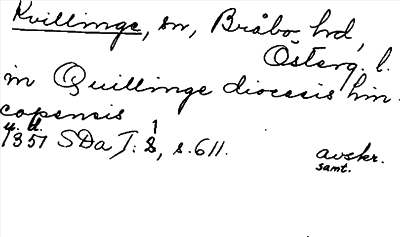 Kvillinge, sn, Bråbo hd,
Österg. l.
in Quillinge diocesis lin-
copensis
u. d.
1351 SDa I: 1, s. 611.
avskr.
samt.